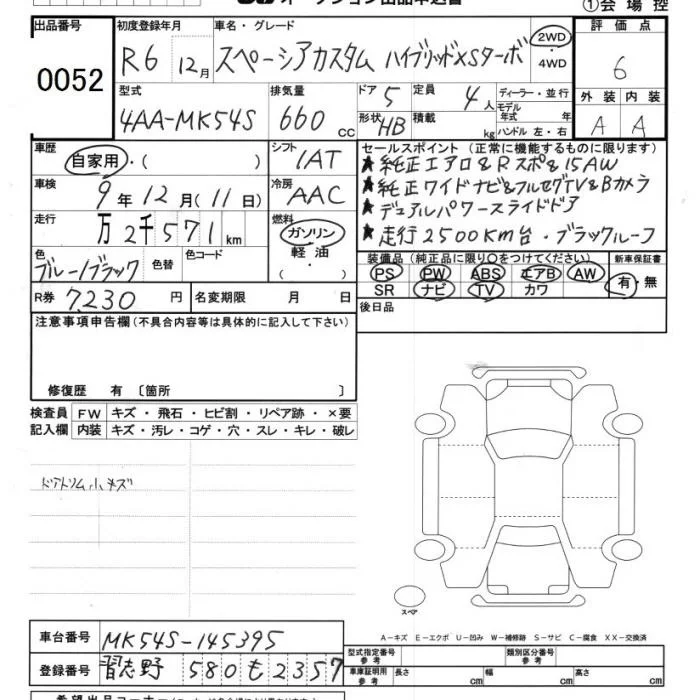 オークション出品申込書
①会場控
出品番号 初度登録年月 車名・グレード 評価点
0052 R6 12月 スペーシアカスタム ハイブリッドXSターボ 2WD ・4WD 6
型式 排気量 ドア 5 定員 4人 ディーラー・並行 外装 内装
4AA-MK54S 660 CC 形状 HB 積載 kg モデル年式 年 ハンドル 左・右 A A
車歴 自家用・( ) シフト 1AT セールスポイント(正常に機能するものに限ります)
★純正エアロ&Rスポ&15AW
車検 9年12月(11日) 冷房 AAC ★純正ワイドナビ&フルセグTV&Bカメラ
★デュアルパワースライドドア
走行 万2千571km 燃料 ガソリン・軽油・( ) ★走行2500KM台・ブラックルーフ
色 ブルー/ブラック 色替 色コード 装備品(純正品に限り〇をつけてください) 新車保証書
PS PW ABS エアB AW 有・無
SR ナビ TV カワ
R券 7,230円 名変期限 月 日 後日品
注意事項申告欄(不具合内容等は具体的に記入して下さい)
修復歴 有 〔箇所 〕
検査員 FW キズ・飛石・ヒビ割・リペア跡・×要
記入欄 内装 キズ・汚レ・コゲ・穴・スレ・キレ・破レ
ドアトリム小キズ
スペア
A-キズ E-エクボ U-凹み W-補修跡 S-サビ C-腐食 XX-交換済
車台番号 MK54S-145395
登録番号 習志野 580 も 2357
型式指定番号 参考 類別区分番号 参考
車庫証明用 参考 長さ cm 幅 cm 高さ cm
希望出品コーナー